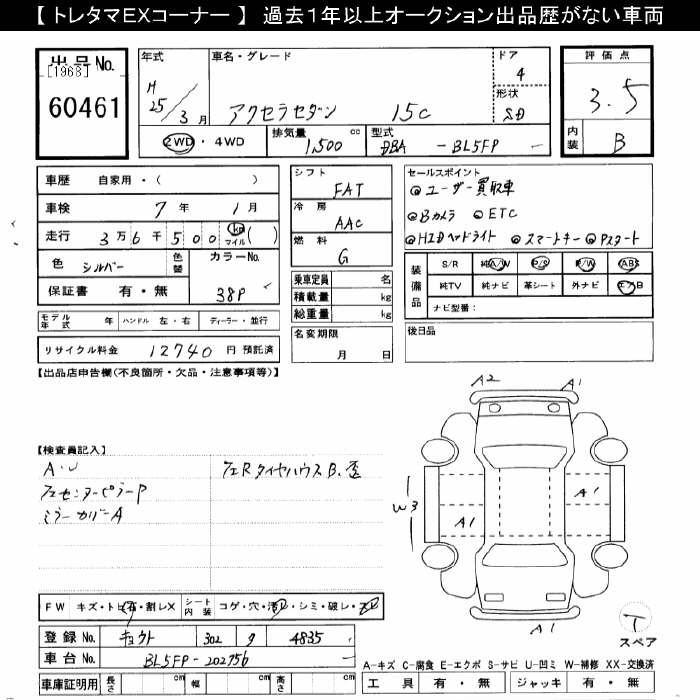 【トレタマEXコーナー】 過去1年以上オークション出品歴がない車両
出品No.
[1968]
60461
年式
H 25/3月
車名・グレード
アクセラセダン 15C
ドア
4
形状
SD
2WD・4WD
排気量 1,500 cc
型式 DBA - BL5FP -
評価点
3.5
内装 B
車歴 自家用・( )
車検 7年 1月
走行 3万6千500 km マイル ( )
色 シルバー
色替
カラーNo. 38P
保証書 有・無
モデル年式 年 ハンドル 左・右 ディーラー・並行
リサイクル料金 12740 円 預託済
シフト
FAT
冷房
AAC
燃料
G
乗車定員 名
積載量 kg
総重量 kg
名変期限
月 日
セールスポイント
◎ユーザー買取車
◎Bカメラ ◎ETC
◎HIDヘッドライト ◎スマートキー ◎Pスタート
装備品
S/R 純A/W P/S P/W ABS
純TV 純ナビ 革シート 外ナビ エアB
ナビ型番:
後日品
【出品店申告欄(不良箇所・欠品・注意事項等)】
【検査員記入】
A・U
フェセンターピラーP
ミラーカバーA
フェRタイヤハウスB、歪
A2 A1
W3
A1
A1
A1
T
スペア
FW キズ・トビ石・割レX
シート内装 コゲ・穴・汚レ・シミ・破レ・スレ
登録No. キョウト 302 ヲ 4835
車台No. BL5FP-202756 -
車庫証明用 長さ cm 幅 cm 高さ cm
A-キズ C-腐食 E-エクボ S-サビ U-凹ミ W-補修 XX-交換済
工具 有・無 ジャッキ 有・無